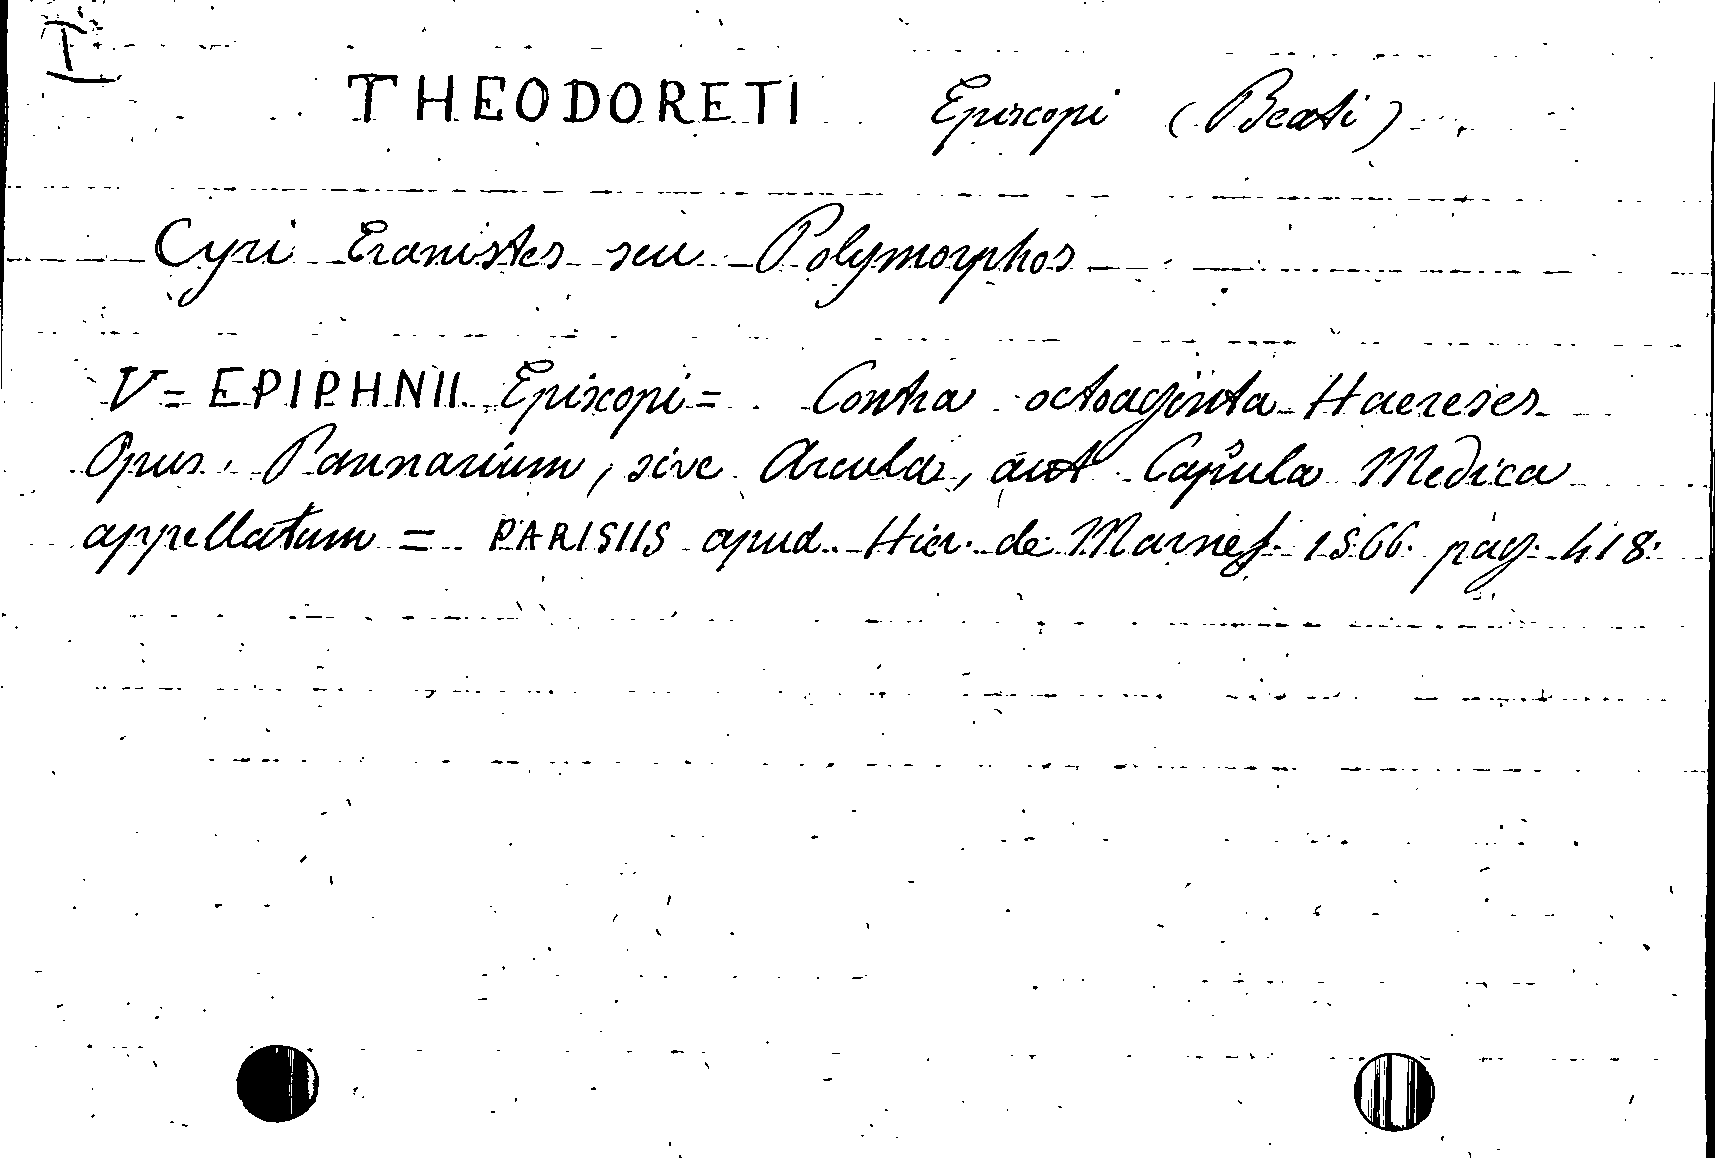 I
THEODORETI Episcopi (Beati)
Cyri Eranistes seu Polymorphos
V= EPIPHNII Episcopi = Contra octoaginta Haereses
Opus. Pannarium, sive Arcula, aut Capsula Medica
appellatum = PARISIIS apud. Hier. de Marnef. 1566. pag. 418.